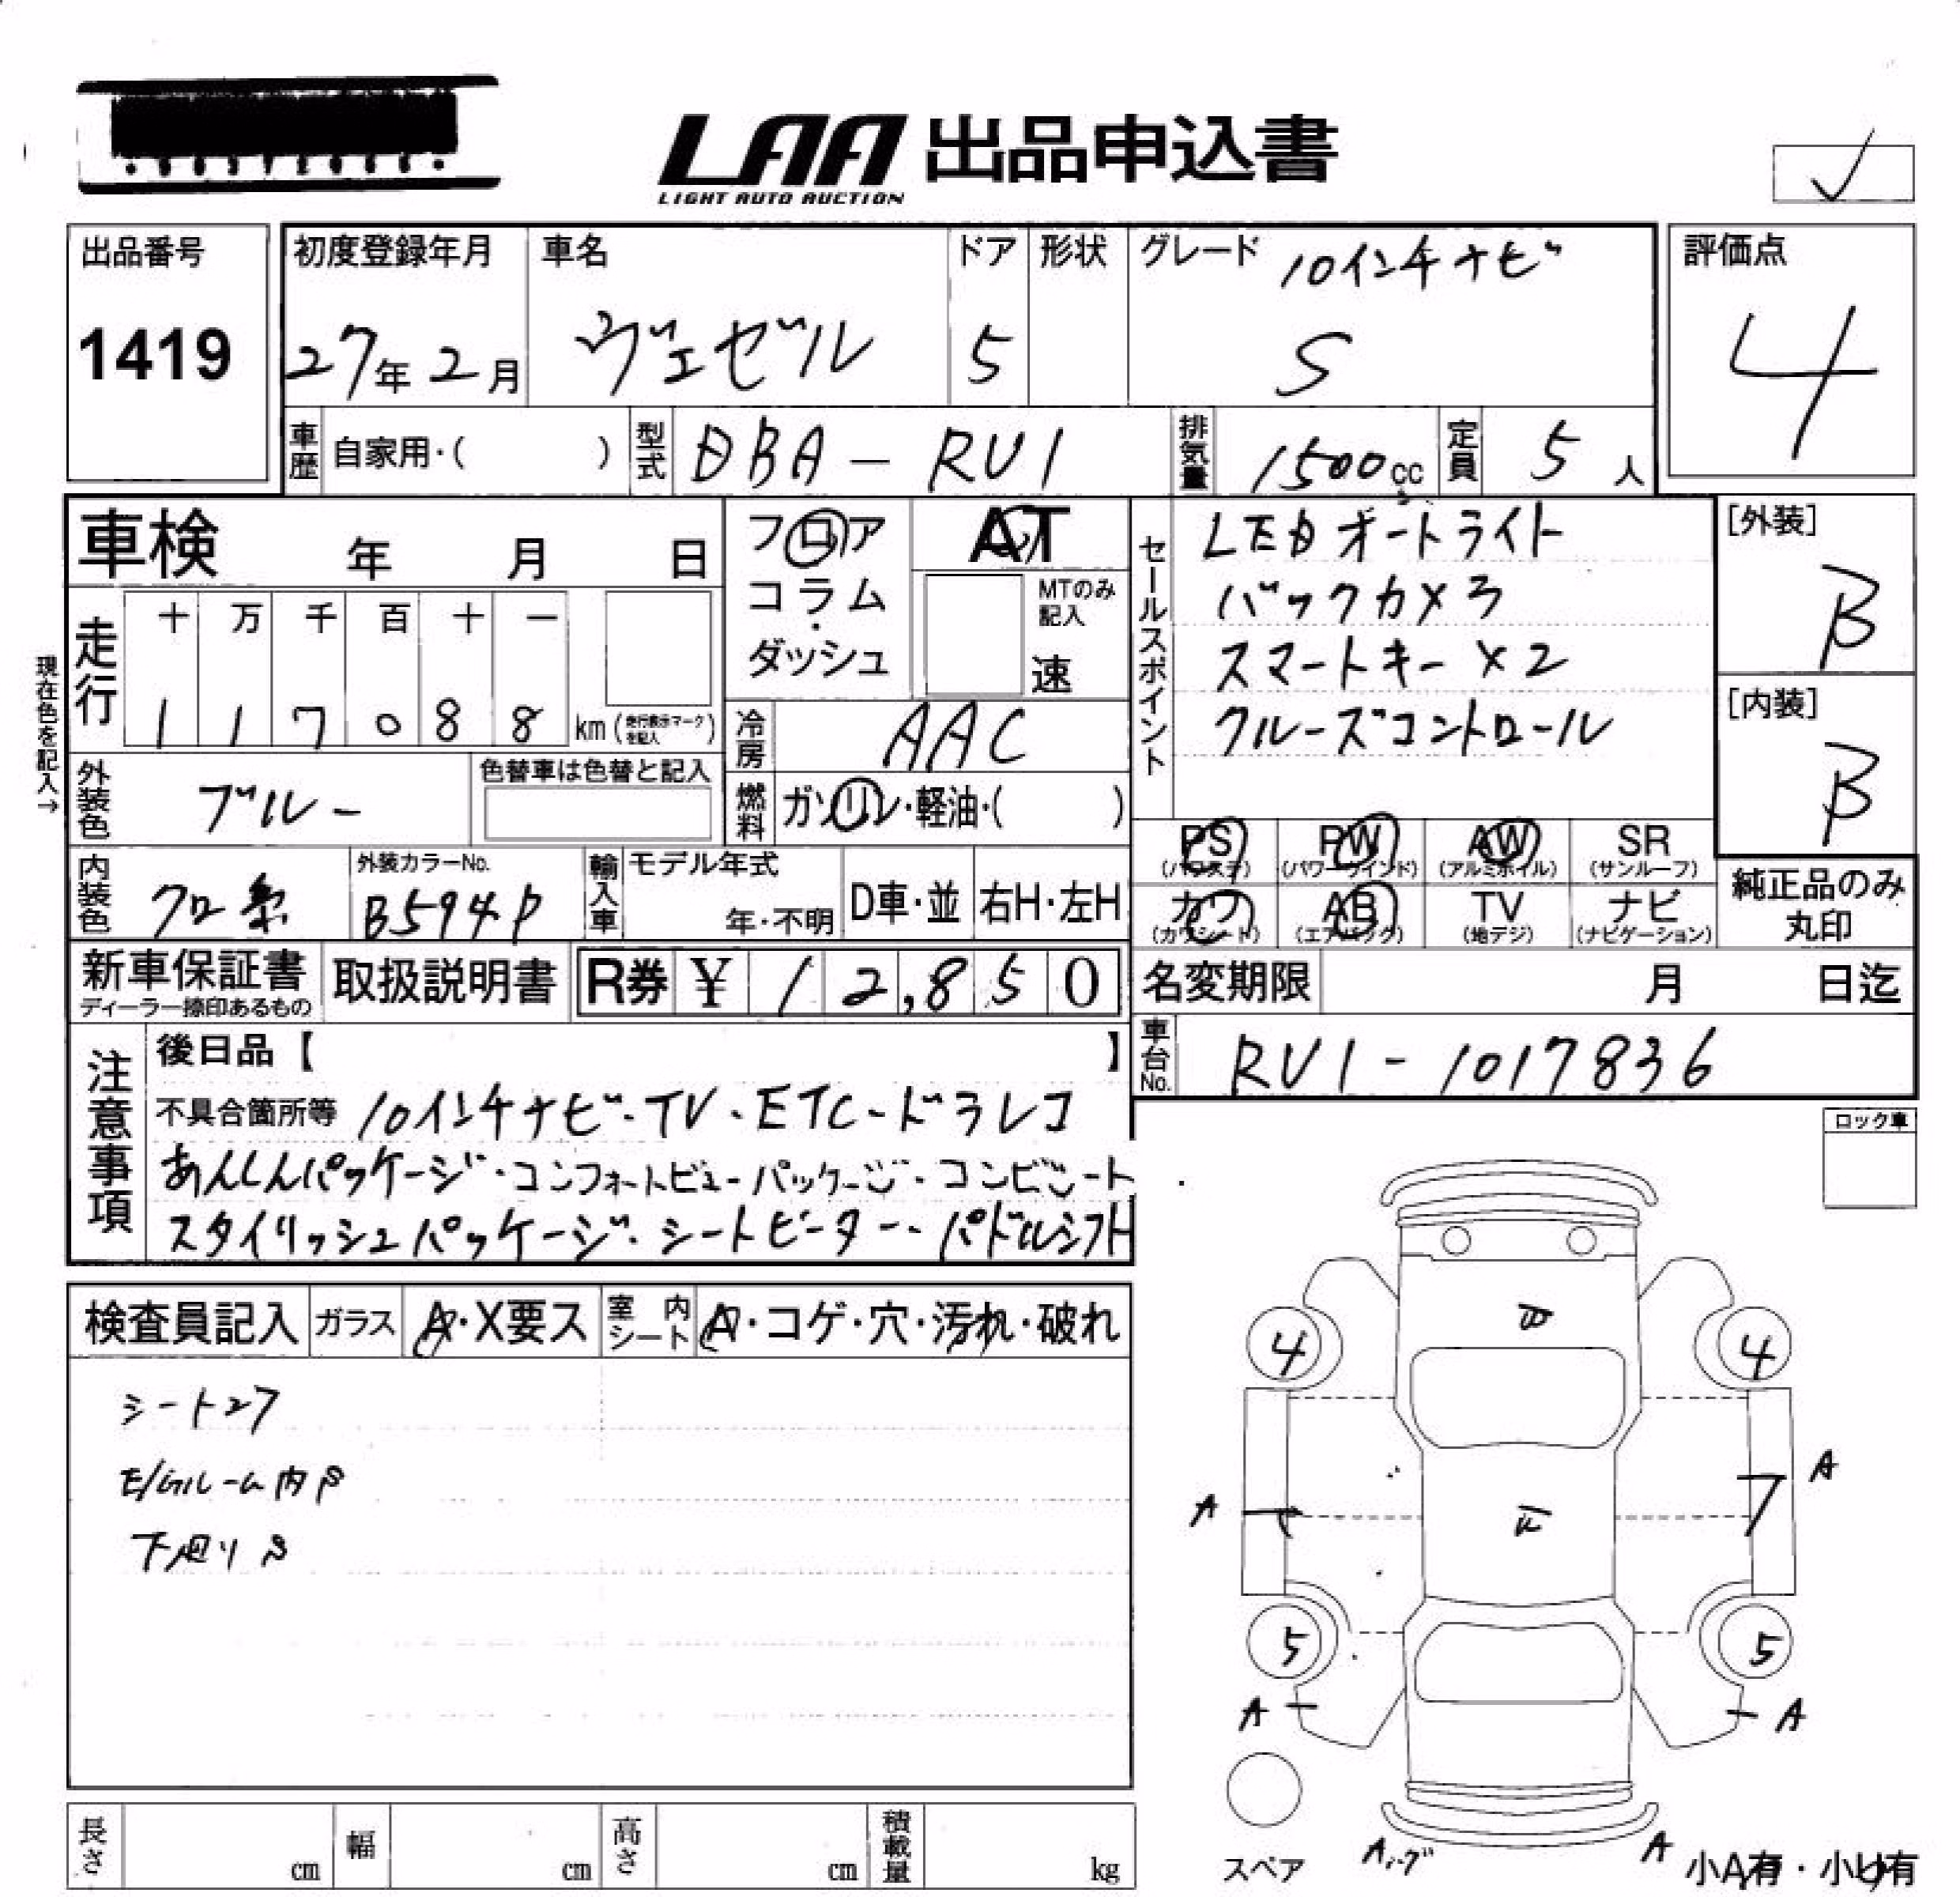 LAA 出品申込書
LIGHT AUTO AUCTION
出品番号
1419
初度登録年月
27年2月
車名
ヴェゼル
ドア
5
形状
グレード 10インチナビ
S
評価点
4
車歴 自家用・( )
型式 DBA-RU1
排気量 1500cc
定員 5人
車検 年 月 日
フロア
コラム
・
ダッシュ
AT
MTのみ記入
速
走行
十 万 千 百 十 一
1 1 7 0 8 8 km (走行表示マークを記入)
現在色を記入→
冷房 AAC
燃料 ガソリン・軽油・( )
外装色 ブルー
色替車は色替と記入
内装色 クロ系
外装カラーNo.
B594P
輸入車 モデル年式
年・不明
D車・並
右H・左H
セールスポイント
LEDオートライト
バックカメラ
スマートキー×2
クルーズコントロール
[外装]
B
[内装]
B
PS (パワステ)
PW (パワーウインド)
AW (アルミホイル)
SR (サンルーフ)
カワ (カワシート)
AB (エアバック)
TV (地デジ)
ナビ (ナビゲーション)
純正品のみ
丸印
新車保証書
ディーラー捺印あるもの
取扱説明書
R券 ¥ 12,850
名変期限 月 日迄
車台No. RU1-1017836
注意事項
後日品【 】
不具合箇所等 10インチナビ・TV・ETC・ドラレコ
あんしんパッケージ・コンフォートビューパッケージ・コンビシート
スタイリッシュパッケージ・シートヒーター・パドルシフト
ロック車
検査員記入
ガラス A・X要ス
室内シート A・コゲ・穴・汚れ・破れ
シートスフ
E/Gルーム内S
下廻りS
4
4
A
A
5
5
A
A
スペア
A
小A有・小U有
長さ cm
幅 cm
高さ cm
積載量 kg